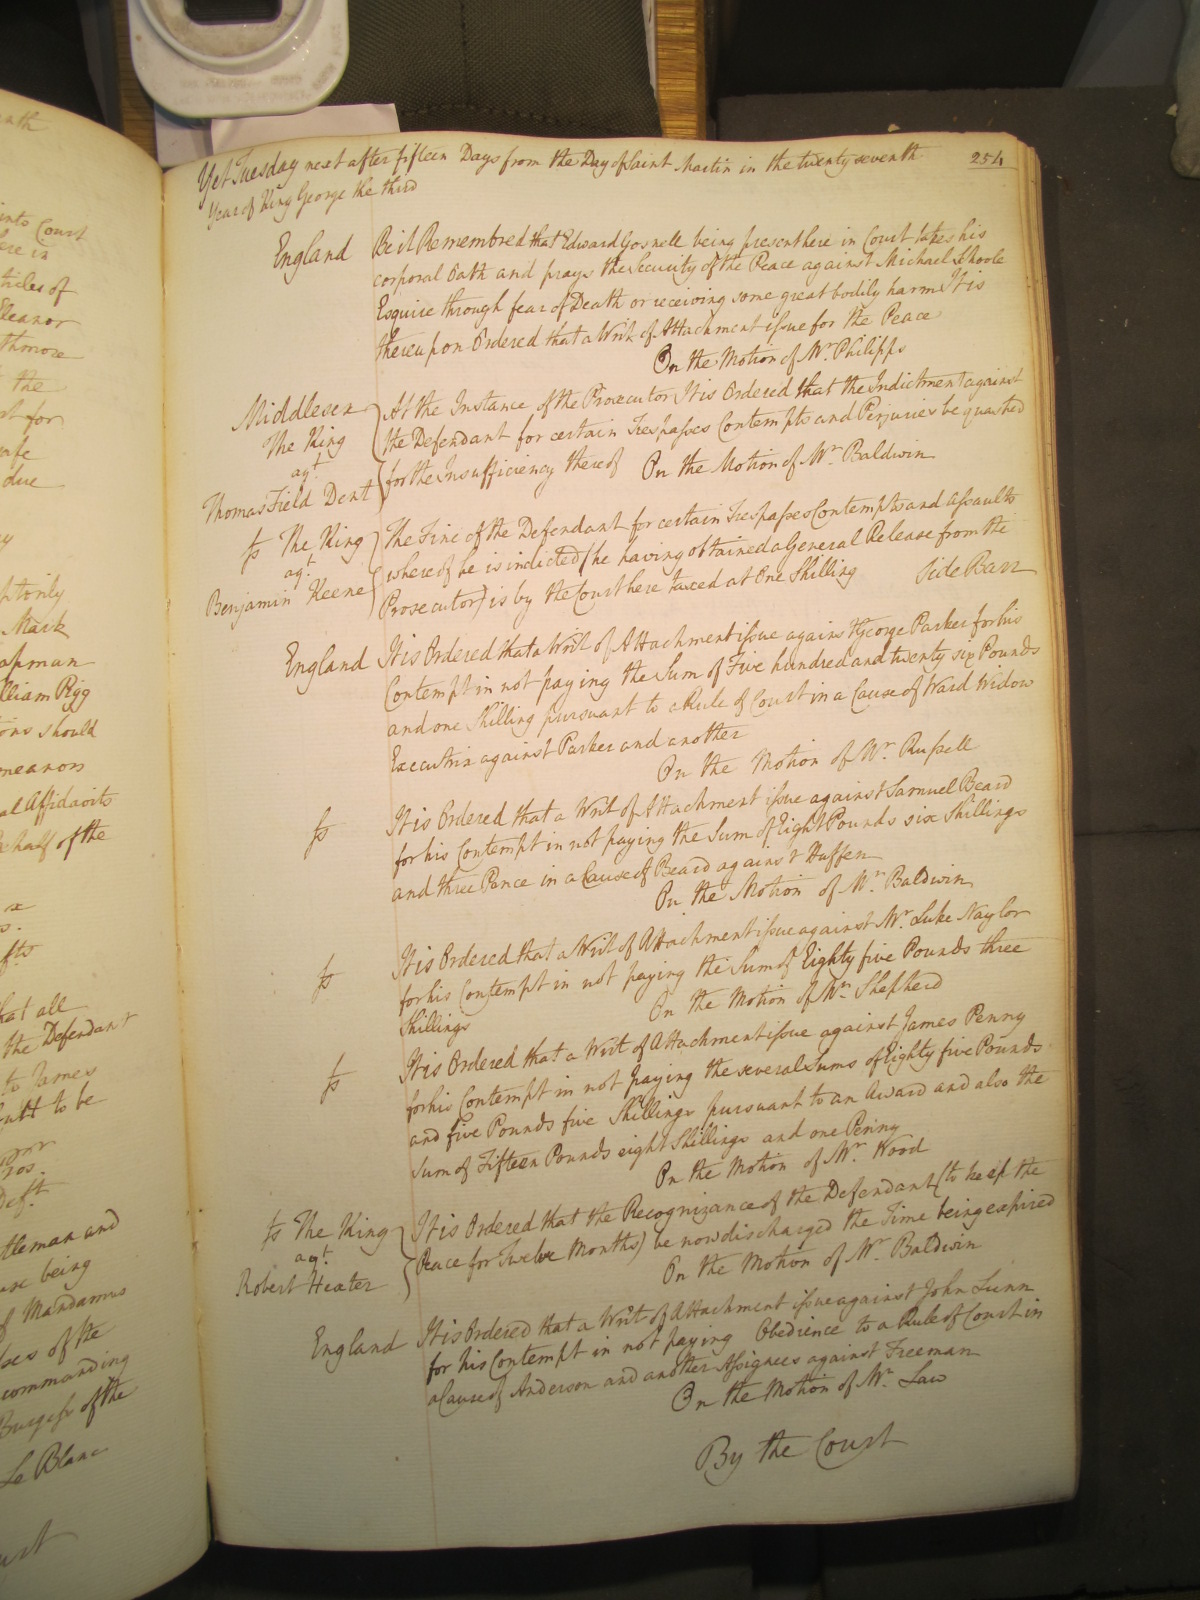 Yet Tuesday next after fifteen Days from the Day of Saint Martin in the twenty seventh 254
Year of King George the third
England Be it Remembred that Edward Gosnell being present here in Court takes his
corporal Oath and prays the Security of the Peace against Michael
Esquire through fear of Death or receiving some great bodily harm It is
thereupon Ordered that a Writ of Attachment issue for the Peace
On the Motion of Mr. Philipps
Middlesex At the Instance of the Prosecutor It is Ordered that the Indictment against
The King the Defendant for certain Trespasses Contempts and Perjuries be quashed
agt for the Insufficiency thereof On the Motion of Mr. Baldwin
Thomas Field Dent
ss The King The Fine of the Defendant for certain Trespasses Contempts and Assaults
agt. whereof he is indicted (he having obtained a General Release from the
Benjamin Keene Prosecutor) is by the Court here taxed at One Shilling Side Barr
England It is Ordered that a Writ of Attachment issue against George Parker for his
Contempt in not paying the Sum of Five hundred and twenty six Pounds
and one Shilling pursuant to a Rule of Court in a Cause of Ward Widow
Executrix against Parker and another
On the Motion of Mr. Russell
ss It is Ordered that a Writ of Attachment issue against Samuel Beard
for his Contempt in not paying the Sum of Eight Pounds six Shillings
and three Pence in a Cause of Beard against Huffen
On the Motion of Mr. Baldwin
ss It is Ordered that a Writ of Attachment issue against Mr. Luke Naylor
for his Contempt in not paying the Sum of Eighty five Pounds three
Shillings On the Motion of Mr. Shepherd
ss It is Ordered that a Writ of Attachment issue against James Penny
for his Contempt in not paying the several Sums of Eighty five Pounds
and five Pounds five Shillings pursuant to an Award and also the
Sum of Fifteen Pounds eight Shillings and one Penny
On the Motion of Mr. Wood
ss The King It is Ordered that the Recognizance of the Defendant (to keep the
agt. Peace for Twelve Months) be now discharged the Time being expired
Robert Hexter On the Motion of Mr. Baldwin
England It is Ordered that a Writ of Attachment issue against John Lunn
for his Contempt in not paying Obedience to a Rule of Court in
a Cause of Anderson and another Assignees against Freeman
On the Motion of Mr. Law
By the Court